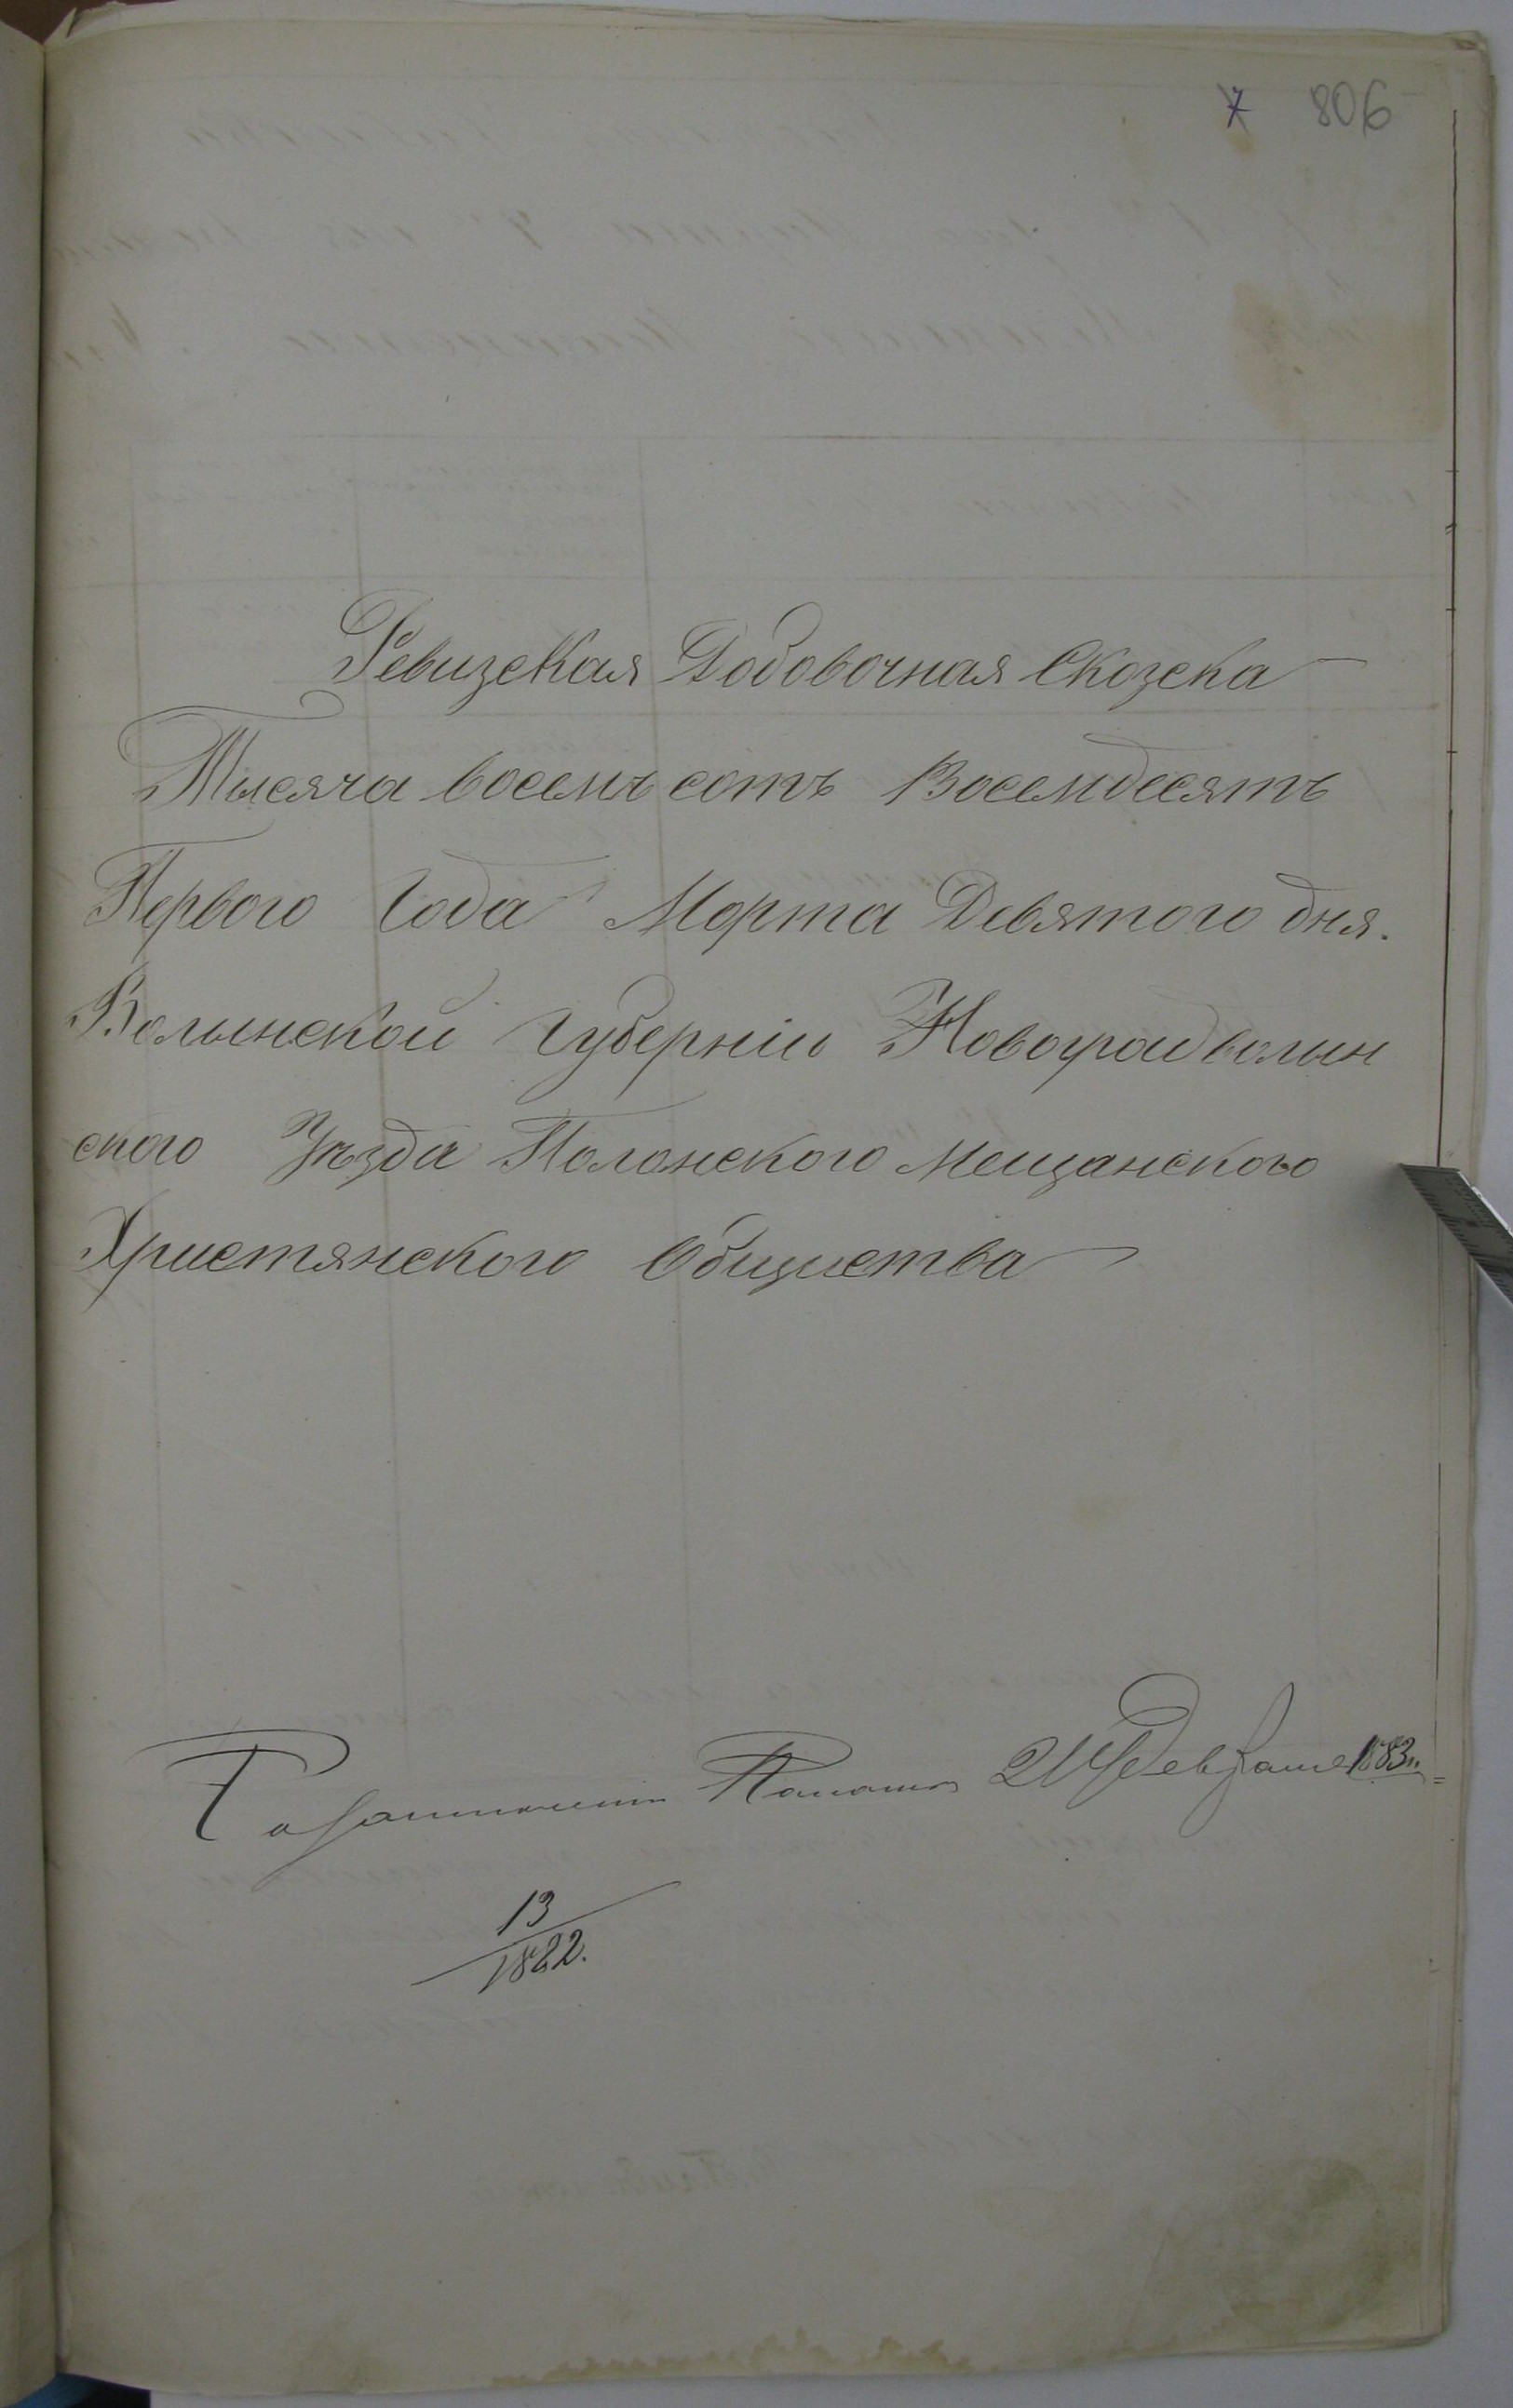 7 806
Ревизская Добовочная Сказска
Тысяча восемь сотъ Восемдесятъ
Первого Года Марта Девятого дня.
Волынской Губерніи Новоградволын
ского Уѣзда Полонского Мещанского
Христянского Общиства
24 Февраля 1883 г.
13
1882.